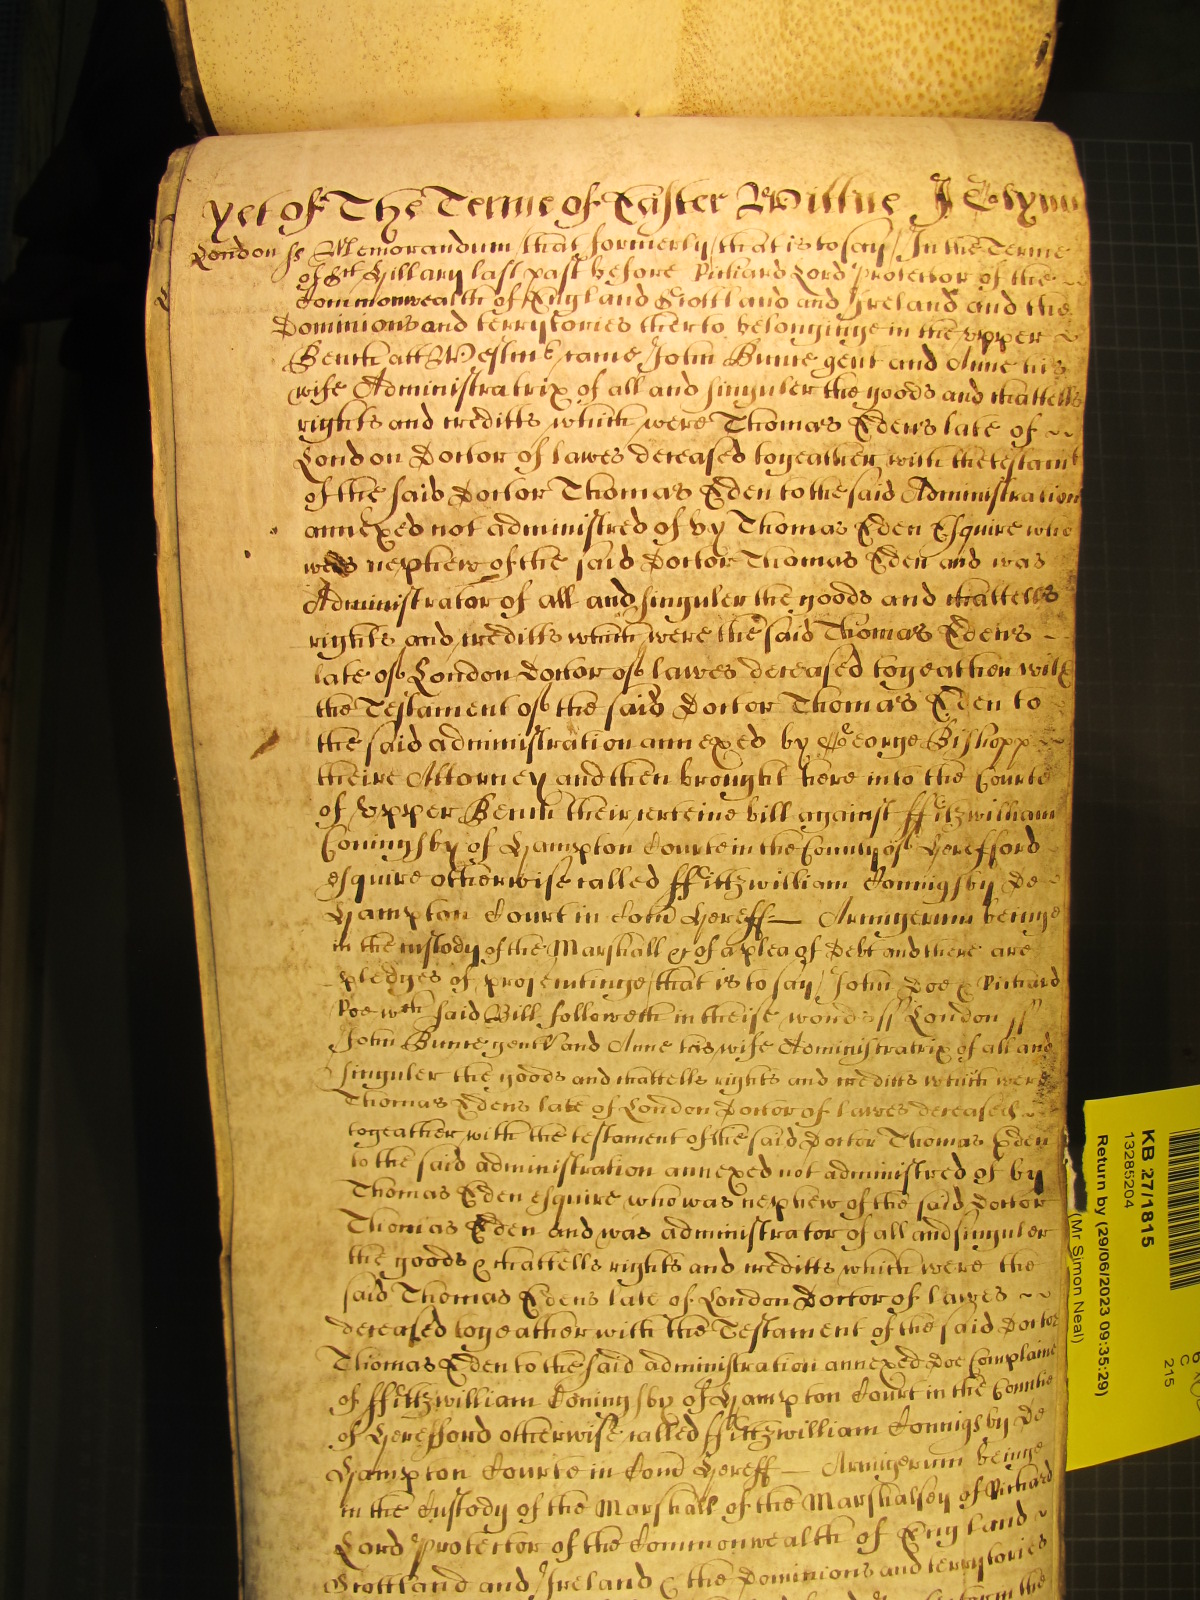 yet of The Terme of Easter Wittne J
London ss Memorandum that formerly that is to say In the Terme
of St Hillary last past before Richard Lord Protector of the
Commonwealth of England Scottland and Ireland and the
Dominions and territories therto belonginge in the vpper
Bench att Westmr came John Bunce gent and Anne his
wife Administratrix of all and singuler the goods and chattells
rights and creditts which were Thomas Edens late of
London Doctor of lawes deceased togeather with the testamt
of the said Doctor Thomas Eden to the said Administration
annexed not administred of by Thomas Eden Esquire who
was nephew of the said Doctor Thomas Eden and was
Administrator of all and singuler the goods and chattells
rights and creditts which were the said Thomas Edens
late of London Doctor of lawes deceased togeather with
the Testament of the said Doctor Thomas Eden to
the said administration annexed by George Bishopp
theire Attorney and then brought here into the Courte
of vpper Bench their certeine bill against ffitzwilliam
Coningsby of Hampton Courte in the County of Herefford
esquire otherwise called ffittzwilliam Connigsby De
Hampton Court in Com Hereff Armigerum beinge
in the custody of the Marshall &c of a plea of Debt and there are
pledges of prosentinge that is to say John Doe & Richard
Roe wch said Bill followeth in theise words ss London ss
John Bunce gent and Anne his wife Administratrix of all and
singuler the goods and chattells rights and creditts which were
Thomas Edens late of London Doctor of lawes deceased
togeather with the testament of the said Doctor Thomas Eden
to the said administration annexed not administred of by
Thomas Eden esquire who was nephew of the said Doctor
Thomas Eden and was administrator of all and singuler
the goods & chattells rights and creditts which were the
said Thomas Edens late of London Doctor of lawes
deceased togeather with the Testament of the said Doctor
Thomas Eden to the said administration annexed doe Complaine
of ffittzwilliam Coningsby of Hampton Court in the Countie
of Herefford otherwise called ffittzwilliam Connigsby De
Hampton Courte in Com Hereff Armigerum beinge
in the Custody of the Marshall of the Marshalsey of Richard
Lord Protector of the Commonwealth of England
Scottland and Ireland & the Dominions and territories
KB 27/1815
13285204
Return by (29/06/2023 09:35:29)
(Mr Simon Neal)
215